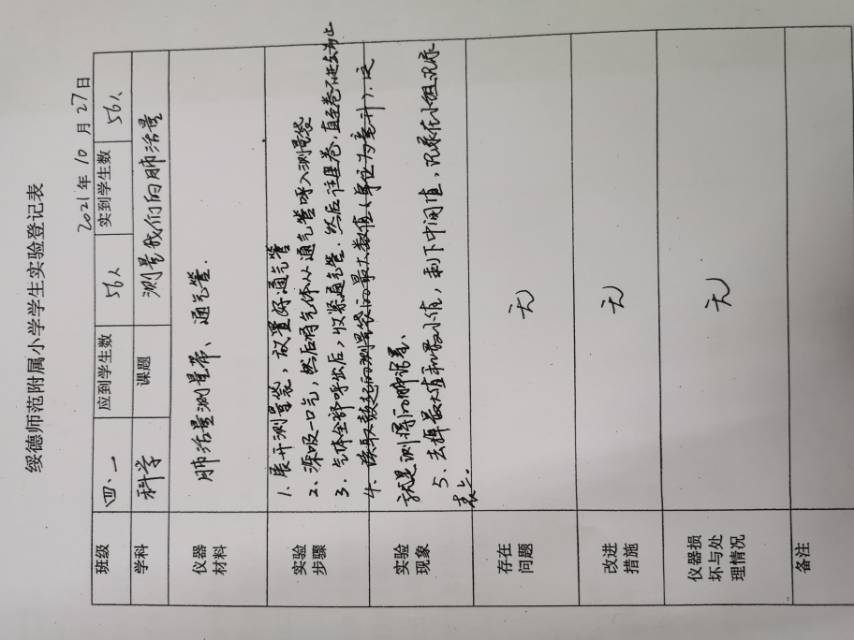 绥德师范附属小学学生实验登记表
2021年 10 月 27 日
班级 四、一 应到学生数 56人 实到学生数 56人
学科 科学 课题 测量我们的肺活量
仪器材料 肺活量测量带、通气管.
实验步骤 1. 展开测量袋，放置好通气管
2. 深吸一口气，然后将气体从通气管呼入测量袋
3. 气体全部呼出后，收紧通气管.然后往里卷，直至卷不动为止
4. 读取鼓起的测量袋的最大数值（单位为毫升）.这
实验现象 就是测得的肺活量、
5、去掉最大值和最小值，剩下中间值，记录在小组记录
表上.
存在问题 无
改进措施 无
仪器损坏与处理情况 无
备注